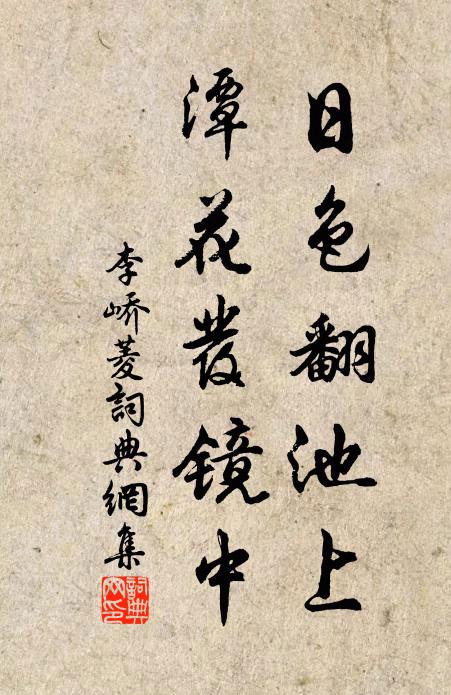 日色翻池上
潭花發鏡中
李嶠菱詞典網集
詞典網印